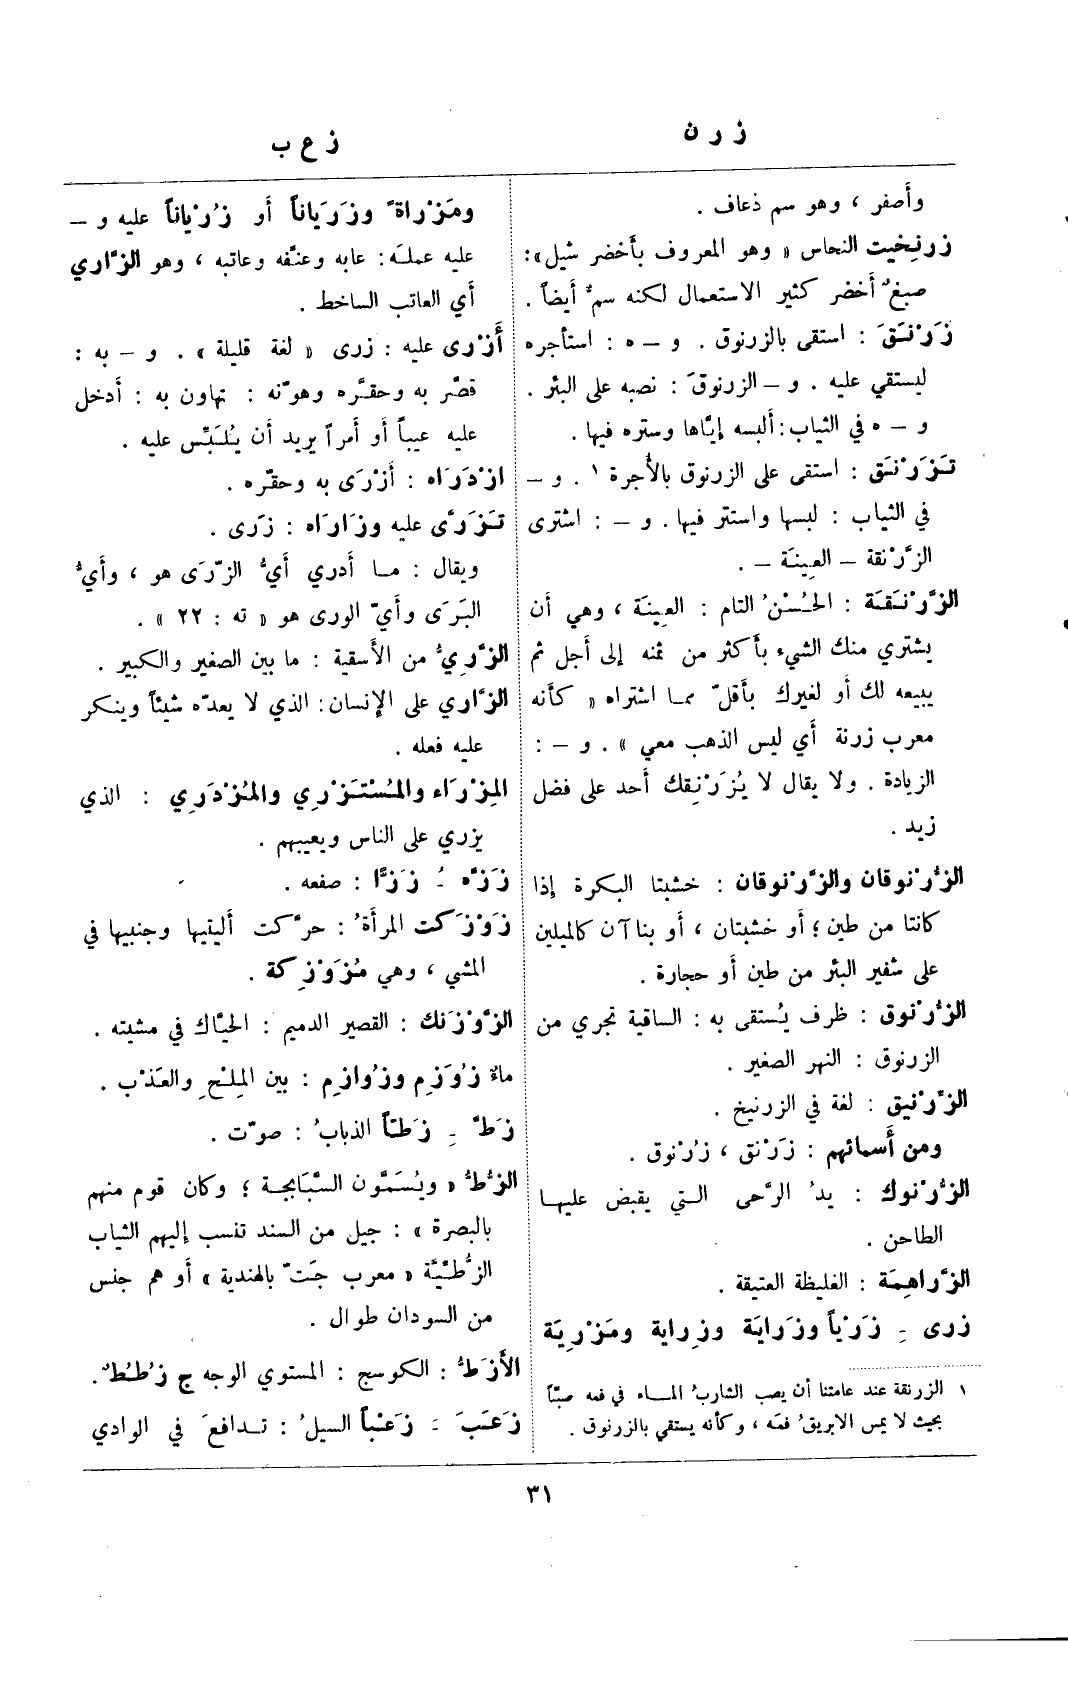 ز ر ن
ز ع ب
وأصفر ، وهو سم ذعاف .
زرنِخيت النحاس « وهو المعروف بأخضر شيل » :
صبغٌ أخضر كثير الاستعمال لكنه سمٌّ أيضاً .
زَرْنَقَ : استقى بالزرنوق . و – ه : استأجره
ليستقي عليه . و – الزرنوقَ : نصبه على البئر .
و – ه في الثياب : ألبسه إيّاها وستره فيها .
تَزَرْنَق : استقى على الزرنوق بالأُجرة ١ . و –
في الثياب : لبسها واستتر فيها . و – : اشترى
الزَّرْنقة – العِينَة – .
الزَّرْنَقَة : الحُسْنُ التام : العِينَة ، وهي أن
يشتري منك الشيء بأكثر من ثمنه إلى أجل ثم
يبيعه لك أو لغيرك بأقلّ مما اشتراه « كأنه
معرب زرنة أي ليس الذهب معي » . و – :
الزيادة . ولا يقال لا يُزَرْنِقك أحد على فضل
زيد .
الزُّرْنوقان والزَّرْنوقان : خشبتا البكرة إذا
كانتا من طين ؛ أو خشبتان ، أو بناآن كالميلين
على شفير البئر من طين أو حجارة .
الزُّرْنوق : ظرف يُستقى به : الساقية تجري من
الزرنوق : النهر الصغير .
الزَّرْنيق : لغة في الزرنيخ .
ومن أَسمائهم : زَرْنق ، زُرْنوق .
الزُّرْنوك : يدُ الرَّحى التي يقبض عليها
الطاحن .
الزَّراهِمَة : الغليظة العتيقة .
زرى ِ زَرْياً وزَرايَة وزِراية ومَزْرِيَة
١ الزرنقة عند عامتنا أن يصب الشاربُ الماء في فمه صبّاً
بحيث لا يمس الابريقُ فمَه ، وكأنه يستقي بالزرنوق .
ومَزْراةً وزَرَياناً أو زُرْياناً عليه و –
عليه عملَه : عابه وعنّفه وعاتبه ، وهو الزَّاري
أي العاتب الساخط .
أَزْرى عليه : زرى « لغة قليلة » . و – به :
قصّر به وحقّره وهوّنه : تهاون به : أدخل
عليه عيباً أو أمراً يريد أن يُلَبِّس عليه .
ازْدَرَاه : أزْرَى به وحقّره .
تَزَرَّى عليه وزَارَاه : زَرى .
ويقال : ما أدري أيُّ الزّرَى هو ، وأيُّ
البَرَى وأيّ الورى هو « ته : ٢٢ » .
الزَّرِيُّ من الأسقية : ما بين الصغير والكبير .
الزَّاري على الإنسان : الذي لا يعدّه شيئاً وينكر
عليه فعله .
المِزْرَاء والمُسْتَزْرِي والمُزْدَرِي : الذي
يزري على الناس ويعيبهم .
زَزَّه ُ زَزًّا : صفعه .
زَوْزَكت المرأةُ : حرَّكت أليتيها وجنبيها في
المشي ، وهي مُزَوْزِكة .
الزَّوْزَنك : القصير الدميم : الحَيَّاك في مشيته .
ماءٌ زُوَزِم وزُوازِم : بين المِلْحِ والعَذْب .
زَطَّ ِ زَطّاً الذبابُ : صوّت .
الزُّطُّ « ويُسَمَّون السَّبَابجة ؛ وكان قوم منهم
بالبصرة » : جيل من السند تنسب إليهم الثياب
الزُّطِّيَّة « معرب جَتّ بالهندية » أو هم جنس
من السودان طوال .
الأَزَطُّ : الكوسج : المستوي الوجه ج زُطْطٌ .
زَعَبَ َ زَعْباً السيلُ : تدافعَ في الوادي
٣١